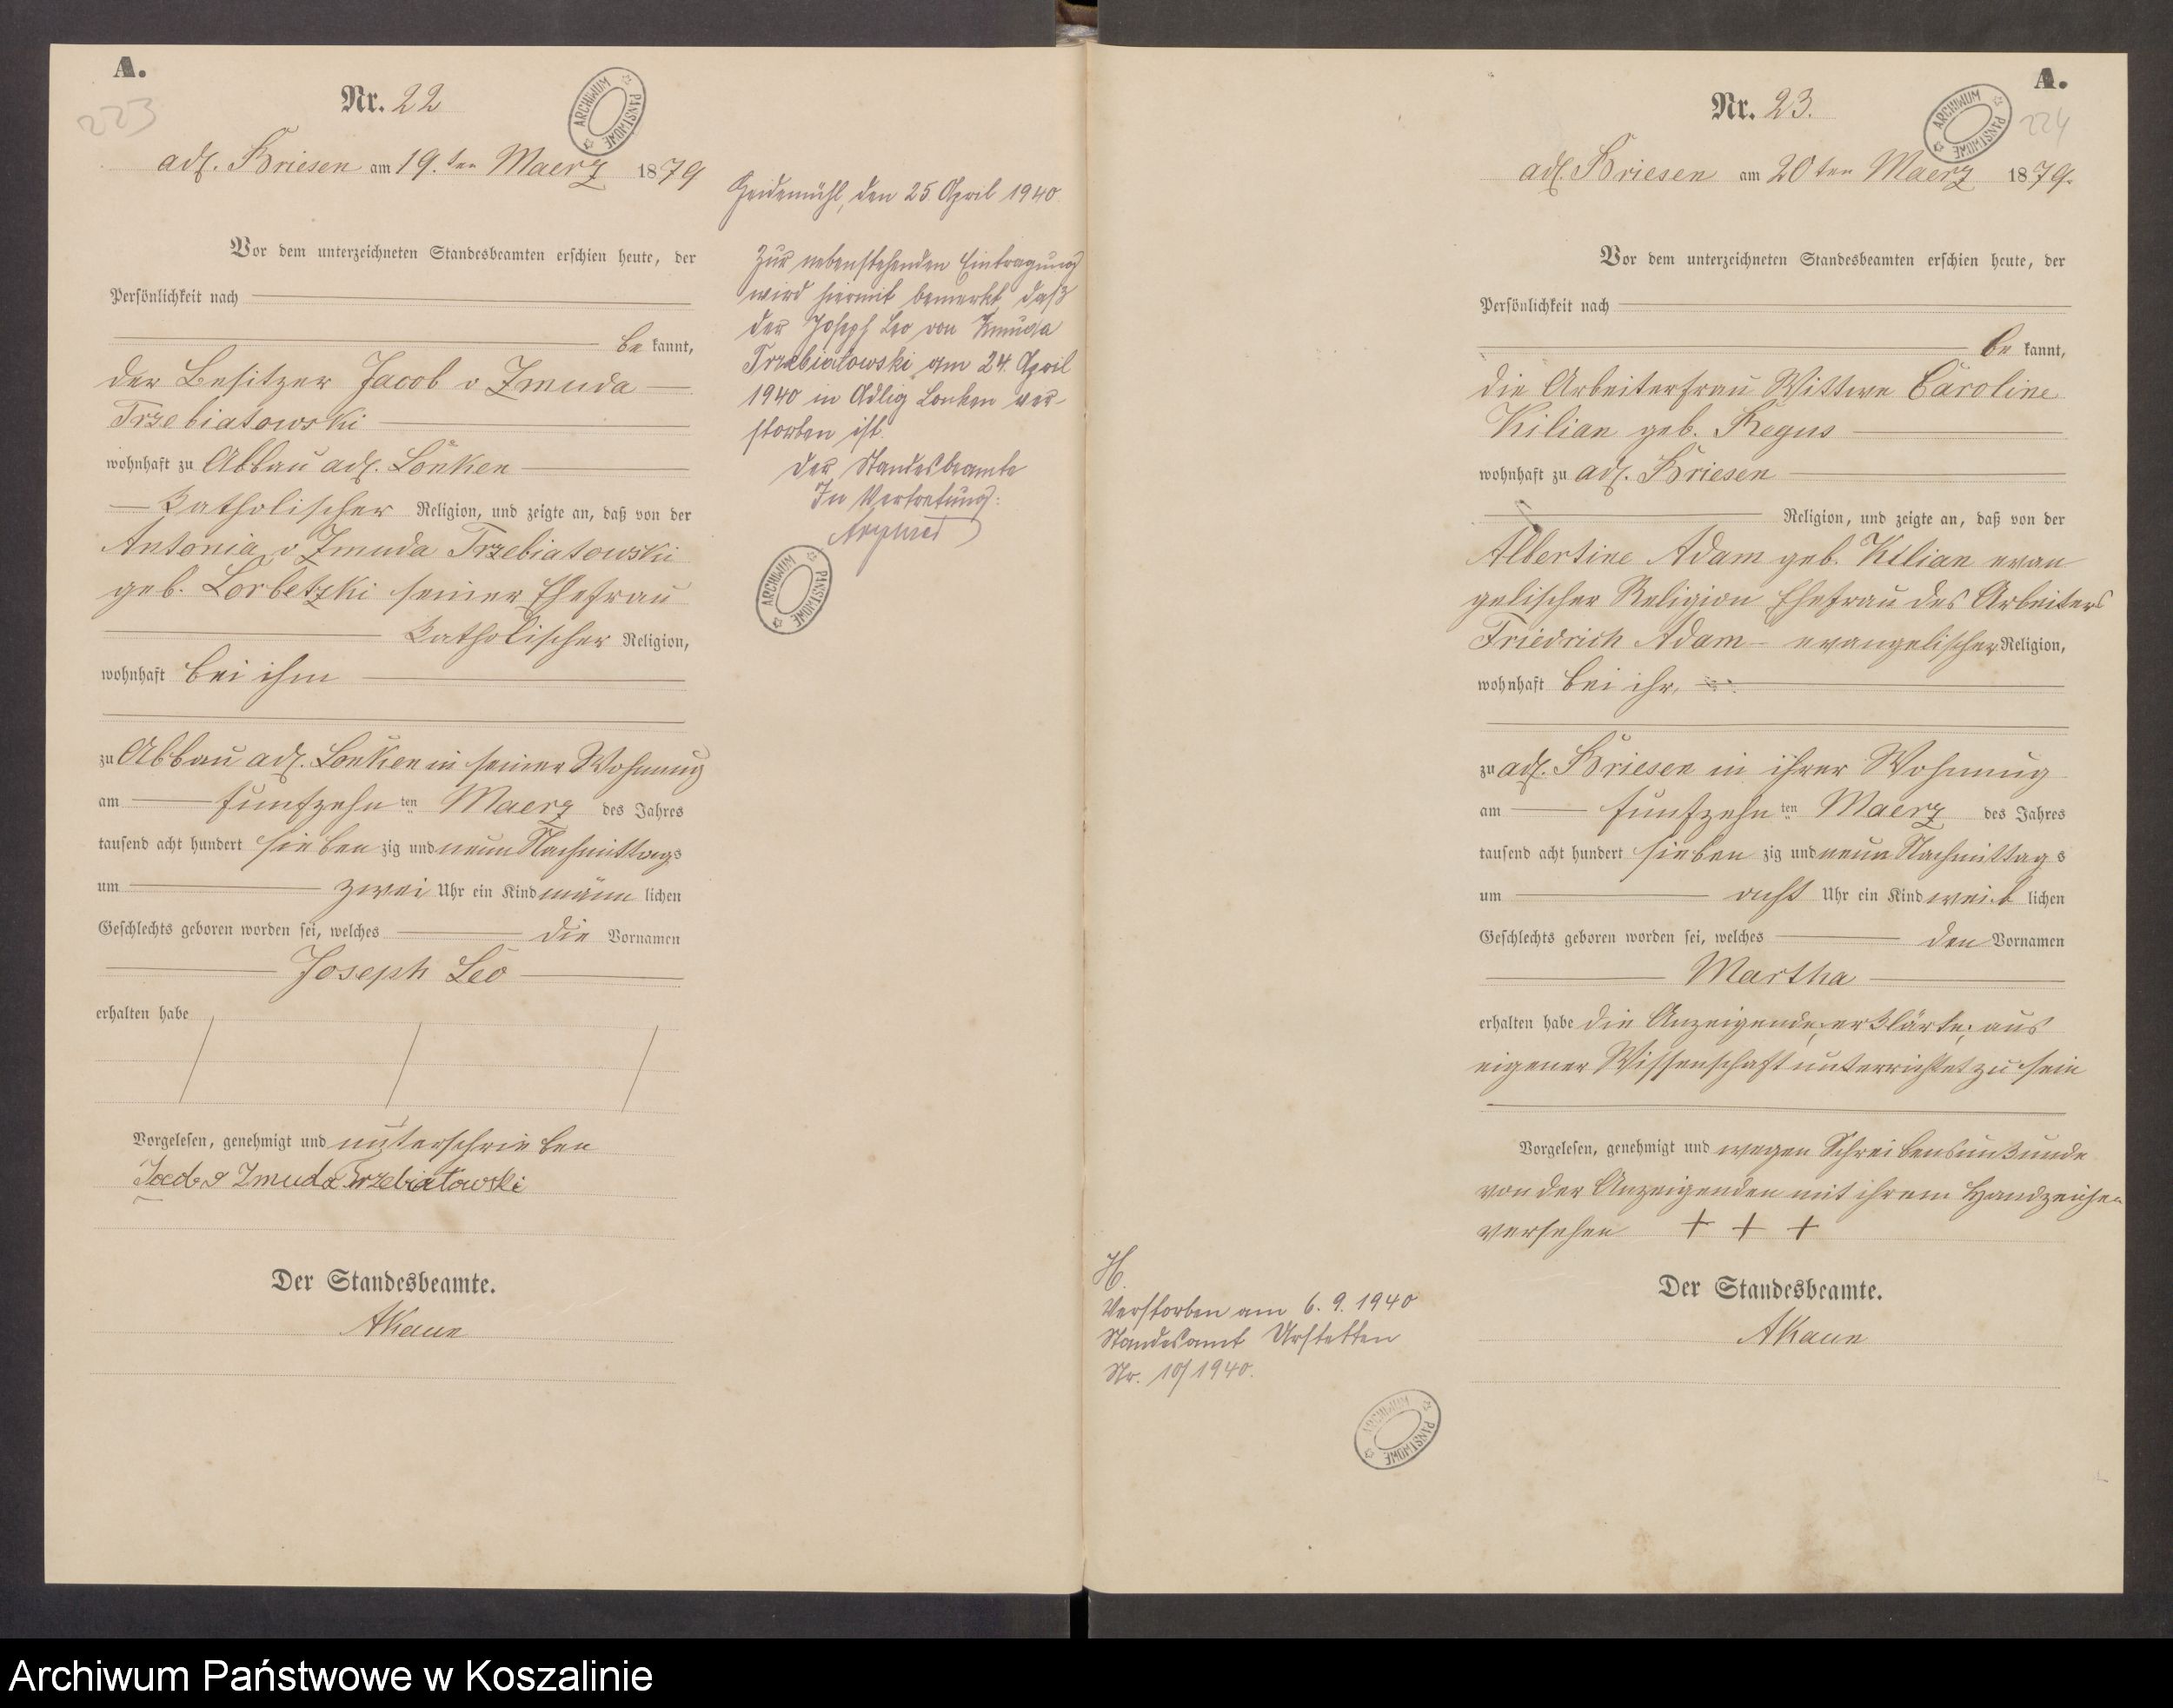 A.
223
Nr. 22
ARCHIWUM PAŃSTWOWE
adl. Briesen am 19.ten Maerz 1879
Vor dem unterzeichneten Standesbeamten erschien heute, der
Persönlichkeit nach
be kannt,
der Besitzer Jacob v Zmuda
Trzebiatowski
wohnhaft zu Abbau adl. Lonken
Katholischer Religion, und zeigte an, daß von der
Antonia v Zmuda Trzebiatowski
geb. Lorbetzki seiner Ehefrau
Katholischer Religion,
wohnhaft bei ihm
zu Abbau adl. Lonken in seiner Wohnung
am funfzehn ten Maerz des Jahres
tausend acht hundert sieben zig und neun Nachmittags
um zwei Uhr ein Kind männ lichen
Geschlechts geboren worden sei, welches die Vornamen
Joseph Leo
erhalten habe
Vorgelesen, genehmigt und unterschrieben
Zmuda Trzebiatowski
Der Standesbeamte.
AKaun
Heidemühl, den 25. April 1940
Zur nebenstehenden Eintragung
wird hiermit bemerkt, daß
der Joseph Leo von Zmuda
Trzebiatowski am 24. April
1940 in Adlig Lonken ver-
storben ist.
Der Standesbeamte
In Vertretung:
ARCHIWUM PAŃSTWOWE
A.
224
Nr. 23.
ARCHIWUM PAŃSTWOWE
adl. Briesen am 20ten Maerz 1879.
Vor dem unterzeichneten Standesbeamten erschien heute, der
Persönlichkeit nach
be kannt,
die Arbeiterfrau Wittwe Caroline
Kilian geb. Regus
wohnhaft zu adl. Briesen
Religion, und zeigte an, daß von der
Albertine Adam geb. Kilian evan
gelischer Religion Ehefrau des Arbeiters
Friedrich Adam – evangelischer Religion,
wohnhaft bei ihr,
zu adl. Briesen in ihrer Wohnung
am funfzehn ten Maerz des Jahres
tausend acht hundert sieben zig und neun Nachmittag s
um acht Uhr ein Kind weib lichen
Geschlechts geboren worden sei, welches den Vornamen
Martha
erhalten habe die Anzeigende, erklärte, aus
eigener Wissenschaft unterrichtet zu sein
Vorgelesen, genehmigt und wegen Schreibensunkunde
von der Anzeigenden mit ihrem Handzeichen
versehen + + +
Der Standesbeamte.
AKaun
H.
Verstorben am 6. 9. 1940
Standesamt Urstetten
Nr. 10/1940.
ARCHIWUM PAŃSTWOWE
Archiwum Państwowe w Koszalinie